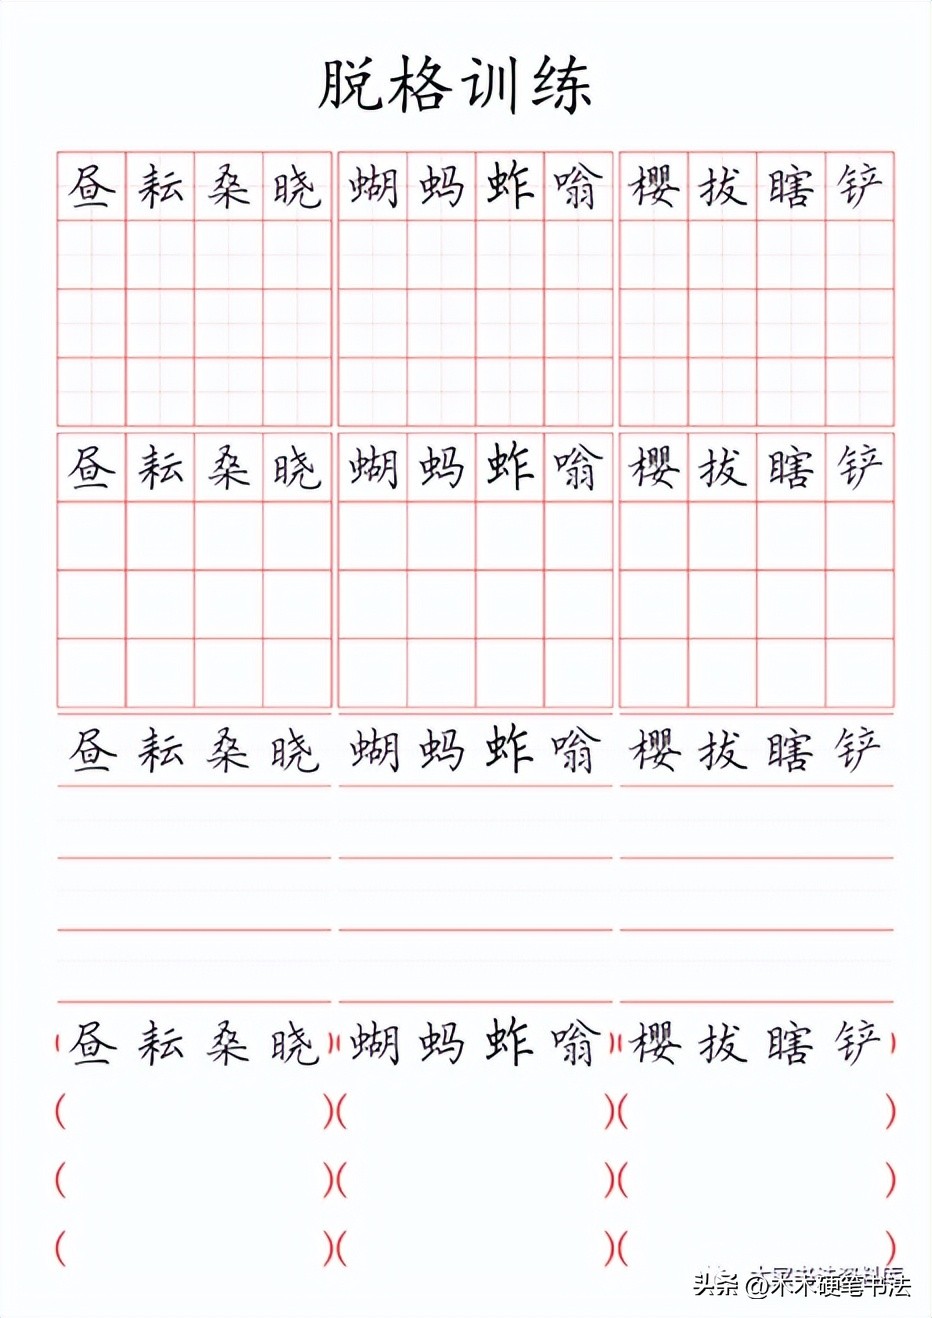 脱格训练
昼耘桑晓 蝴蚂蚱嗡 樱拔瞎铲
昼耘桑晓 蝴蚂蚱嗡 樱拔瞎铲
昼耘桑晓 蝴蚂蚱嗡 樱拔瞎铲
(昼耘桑晓)(蝴蚂蚱嗡)(樱拔瞎铲)
( )( )( )
( )( )( )
( )( )( )
头条 @木木硬笔书法